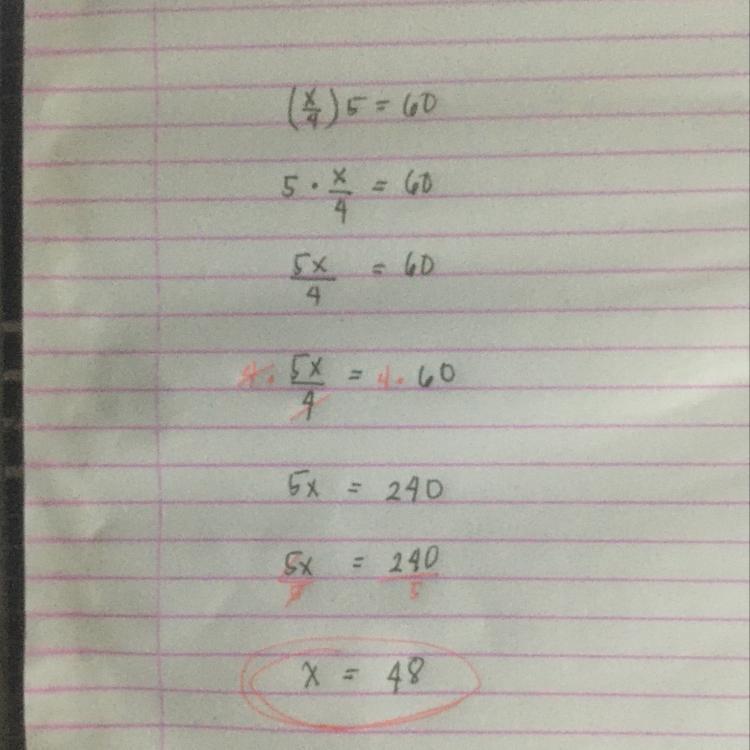 (x/4) 5 = 60
5 · x/4 = 60
5x/4 = 60
4 · 5x/4 = 4 · 60
5x = 240
5x/5 = 240/5
x = 48